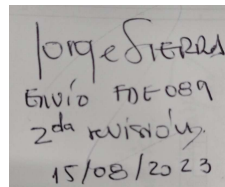 Jorge SIERRA
ENVÍO FDE 089
2da revisión,
15/08/2023